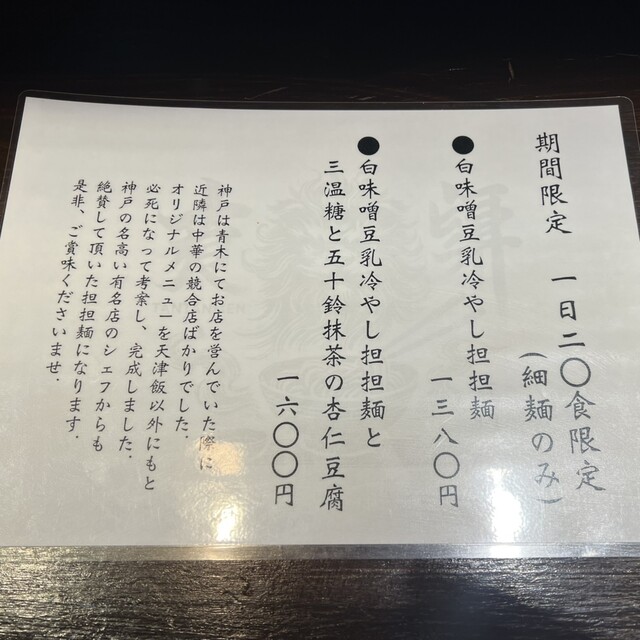 期間限定　一日二〇食限定
(細麺のみ)
●白味噌豆乳冷やし担担麺
一三八〇円
●白味噌豆乳冷やし担担麺と
三温糖と五十鈴抹茶の杏仁豆腐
一六〇〇円
神戸は青木にてお店を営んでいた際に
近隣は中華の競合店ばかりでした.
オリジナルメニューを天津飯以外にもと
必死になって考案し、完成しました.
神戸の名高い有名店のシェフからも
絶賛して頂いた担担麺になります.
是非、ご賞味くださいませ.